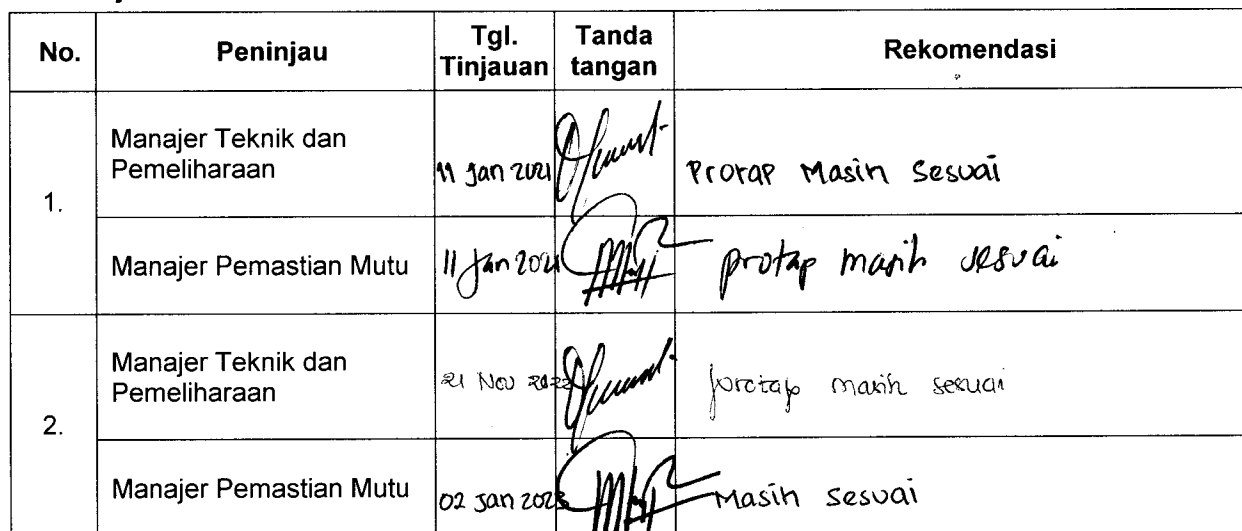 No. Peninjau Tgl. Tinjauan Tanda tangan Rekomendasi
1.
Manajer Teknik dan
Pemeliharaan
11 Jan 2021
Protap Masih Sesuai
Manajer Pemastian Mutu 11 Jan 2021 protap masih sesuai
2.
Manajer Teknik dan
Pemeliharaan
21 Nov 2022
protap masih sesuai
Manajer Pemastian Mutu 02 Jan 2023 Masih sesuai